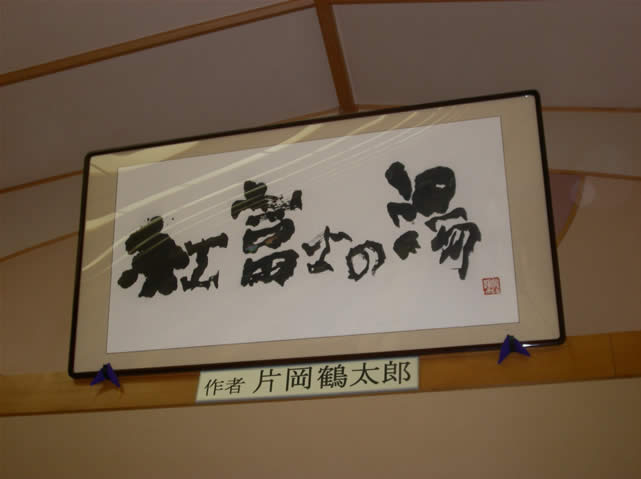 紅富士の湯
作者 片岡鶴太郎